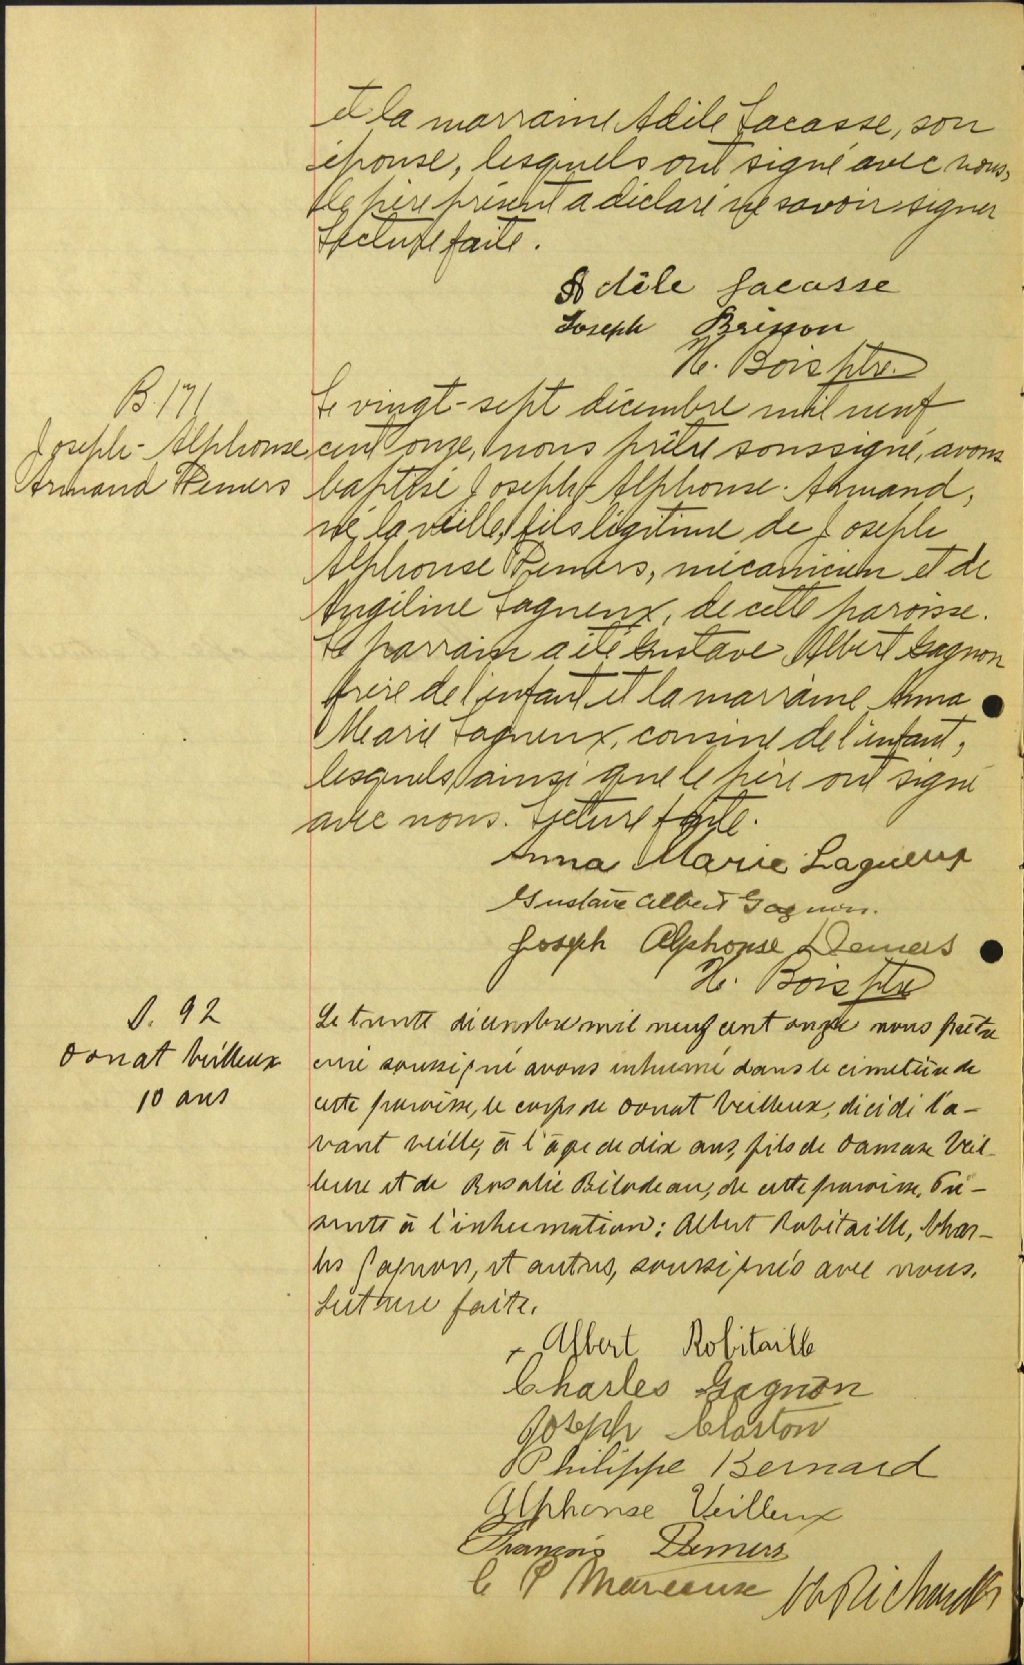 et la marraine Adèle Lacasse, son
épouse, lesquels ont signé avec nous,
le père présent a déclaré ne savoir signer
Lecture faite.
Adèle Lacasse
Joseph Brisson
H. Bois ptre
B. 171
Joseph-Alphonse
Armand Demers
Le vingt-sept décembre mil neuf
cent onze, nous prêtre soussigné, avons
baptisé Joseph-Alphonse-Armand,
né la veille, fils légitime de Joseph
Alphonse Demers, mécanicien et de
Angéline Lagueux, de cette paroisse.
Le parrain a été Gustave Albert Gagnon
frère de l'enfant et la marraine Anna
Marie Lagueux, cousine de l'enfant,
lesquels ainsi que le père ont signé
avec nous. Lecture faite.
Anna Marie Lagueux
Gustave Albert Gagnon.
Joseph Alphonse Demers
H. Bois ptre
S. 92
Donat Veilleux
10 ans
Le trente décembre mil neuf cent onze nous prêtre
curé soussigné avons inhumé dans le cimetière de
cette paroisse, le corps de Donat Veilleux, décédé l'a-
vant veille, à l'âge de dix ans, fils de Damase Veil-
leux et de Rosalie Bilodeau, de cette paroisse. Pré-
sents à l'inhumation: Albert Robitaille, Char-
les Gagnon, et autres, soussignés avec nous.
Lecture faite.
Albert Robitaille
Charles Gagnon
Joseph
Philippe Bernard
Alphonse Veilleux
François Demers
C P Marceau